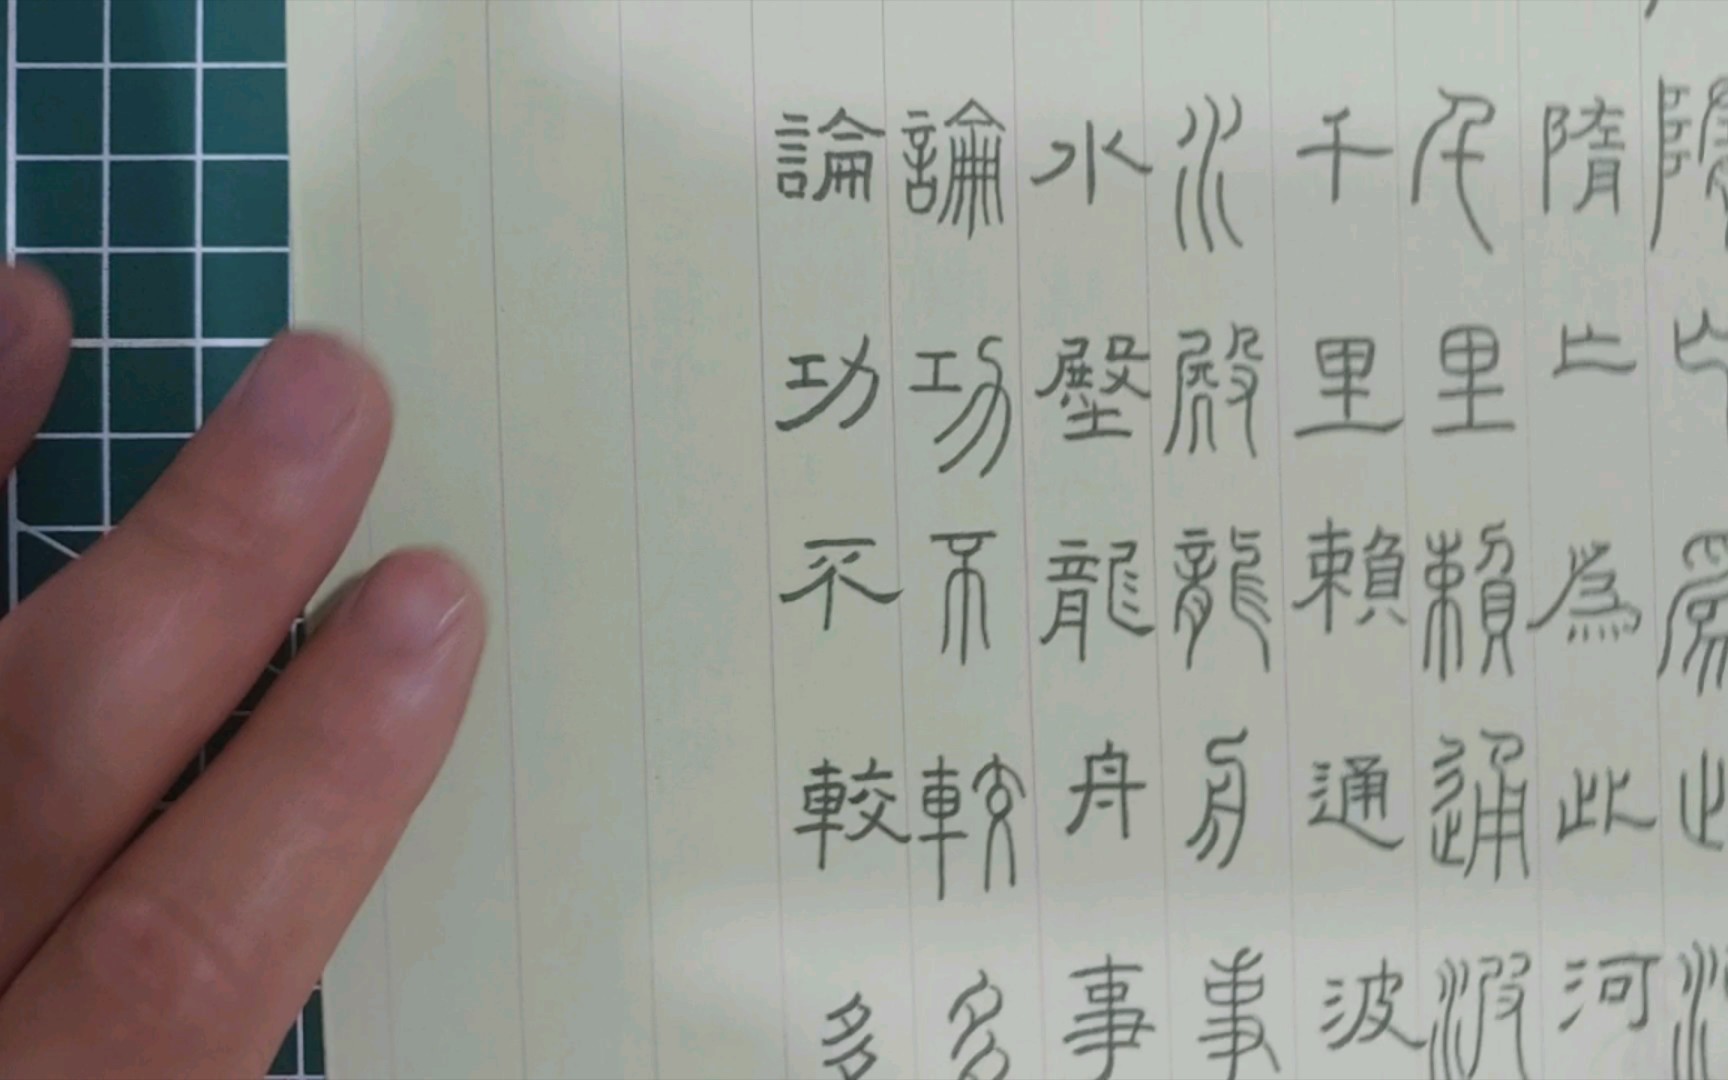 隋亡為此河
隋亡為此河
千里賴通波
千里賴通波
水殿龍舟事
水壂龍舟事
論功不較多
論功不較多